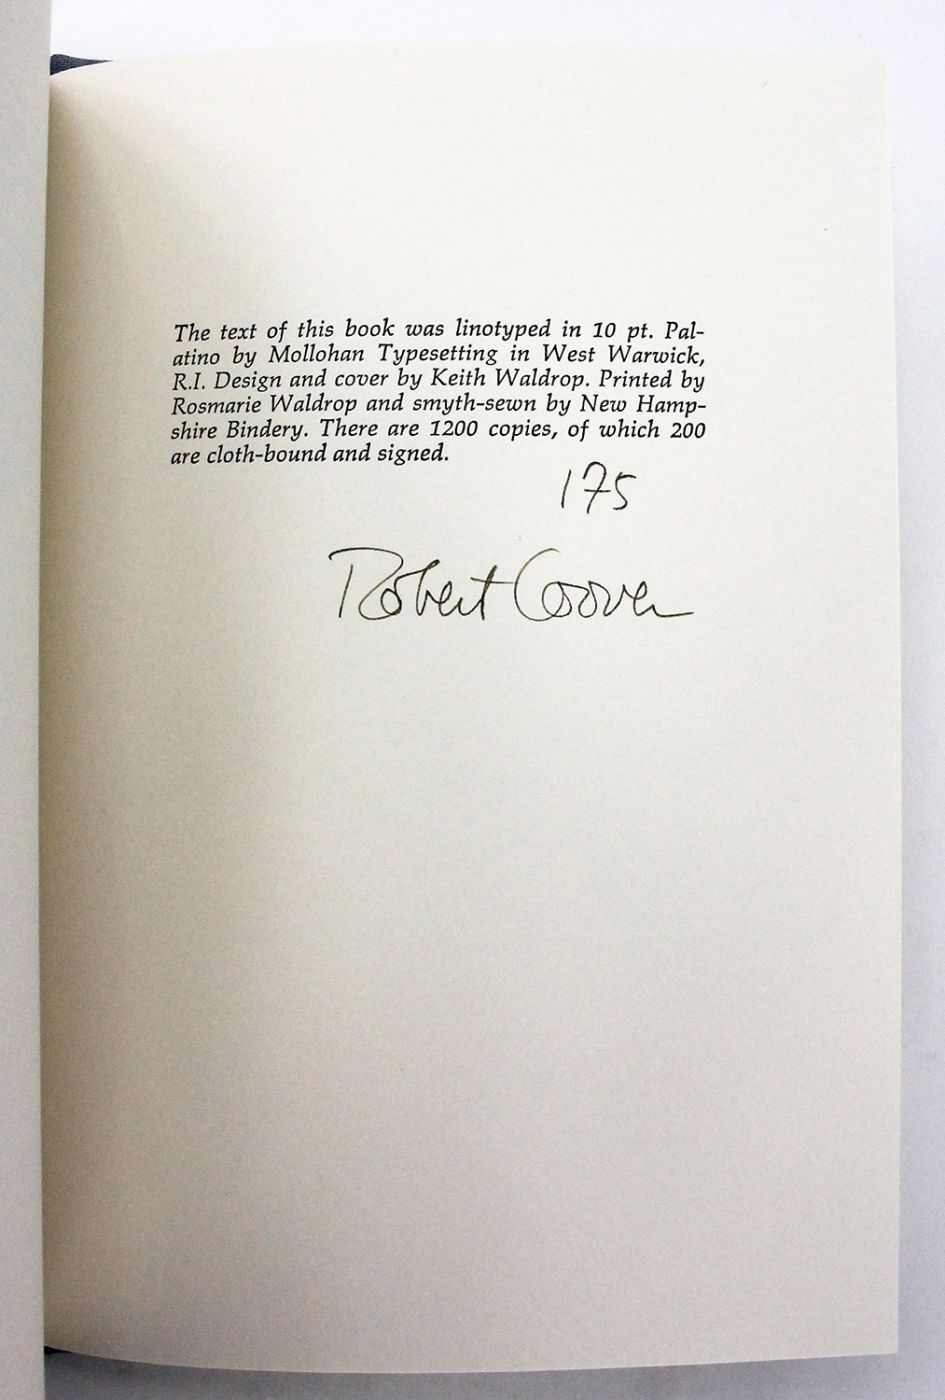 The text of this book was linotyped in 10 pt. Pal-
atino by Mollohan Typesetting in West Warwick,
R.I. Design and cover by Keith Waldrop. Printed by
Rosmarie Waldrop and smyth-sewn by New Hamp-
shire Bindery. There are 1200 copies, of which 200
are cloth-bound and signed.
175
Robert Coover